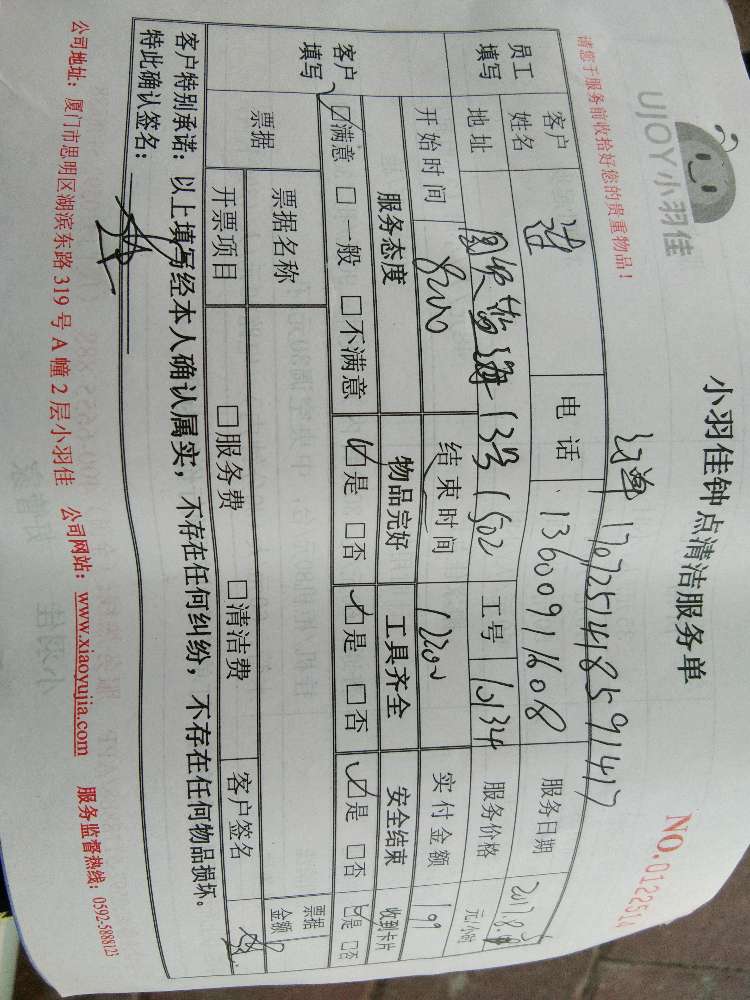 UJOY小羽佳
小羽佳钟点清洁服务单
NO.0122514
请您于服务前收拾好您的贵重物品!
1707251418591417
员工填写 客户姓名 电话 13600911608 服务日期 2017.8.
地址 13号1502 工号 10134 服务价格 元/小时
开始时间 8200 结束时间 1200 实付金额 199
客户填写 服务态度 物品完好 工具齐全 安全结束 收到卡片
☑满意 □一般 □不满意 ☑是 □否 ☑是 □否 ☑是 □否 ☑是 □否
票据 票据名称 票据金额
开票项目 □服务费 □清洁费 客户签名
客户特别承诺:以上填写经本人确认属实,不存在任何纠纷,不存在任何物品损坏。
特此确认签名:
公司地址:厦门市思明区湖滨东路319号A幢2层小羽佳 公司网站:www.xiaoyujia.com 服务监督热线:0592-5888123